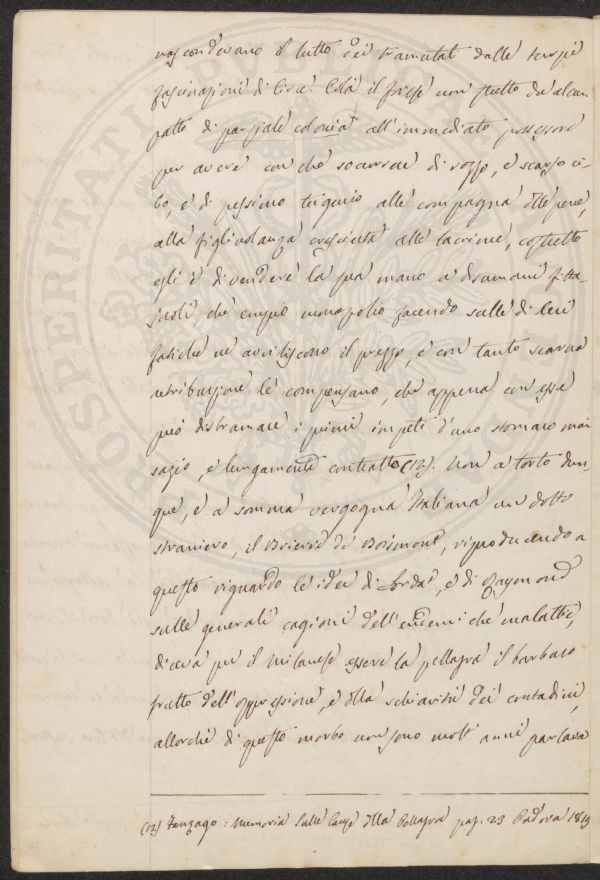 nascondevano il lutto dei tramutati dalle turpi
fascinazioni di Circe. Colà il forese non stretto da alcun
patto di parziale colonia all'immediato possessore
per avere con che soccorrere di rozzo, e scarso ci-
bo, e di pessimo tugurio alle compagna delle pene,
alla figliolanza cresciuta alle lacrime, costretto
egli è di vendere la sua mano a disumani fitta-
juoli, che empio monopolio facendo sulle di lui
fatiche ne avviliscono il prezzo, e con tanto scarsa
retribuzione le compensano, che appena con esse
può disbramare i primi impeti d'uno stomaco mai
sazio, e lungamente contratto (12). Non a torto dun-
que, e a somma vergogna Italiana un dotto
straniero, il Brierre de Boismont, riproducendo a
questo riguardo le idee di Jordat, e di Raymond
sulle generali cagioni dell'endemiche malattie,
diceva per il Milanese essere la pellagra il barbaro
frutto dell'oppressione, e della schiavitù dei contadini,
allorchè di questo morbo non sono molti anni parlava
(12) Fanzago: Memoria sulle cause della Pellagra pag. 23 Padova 1815
PROSPERITATI PUBLICAE